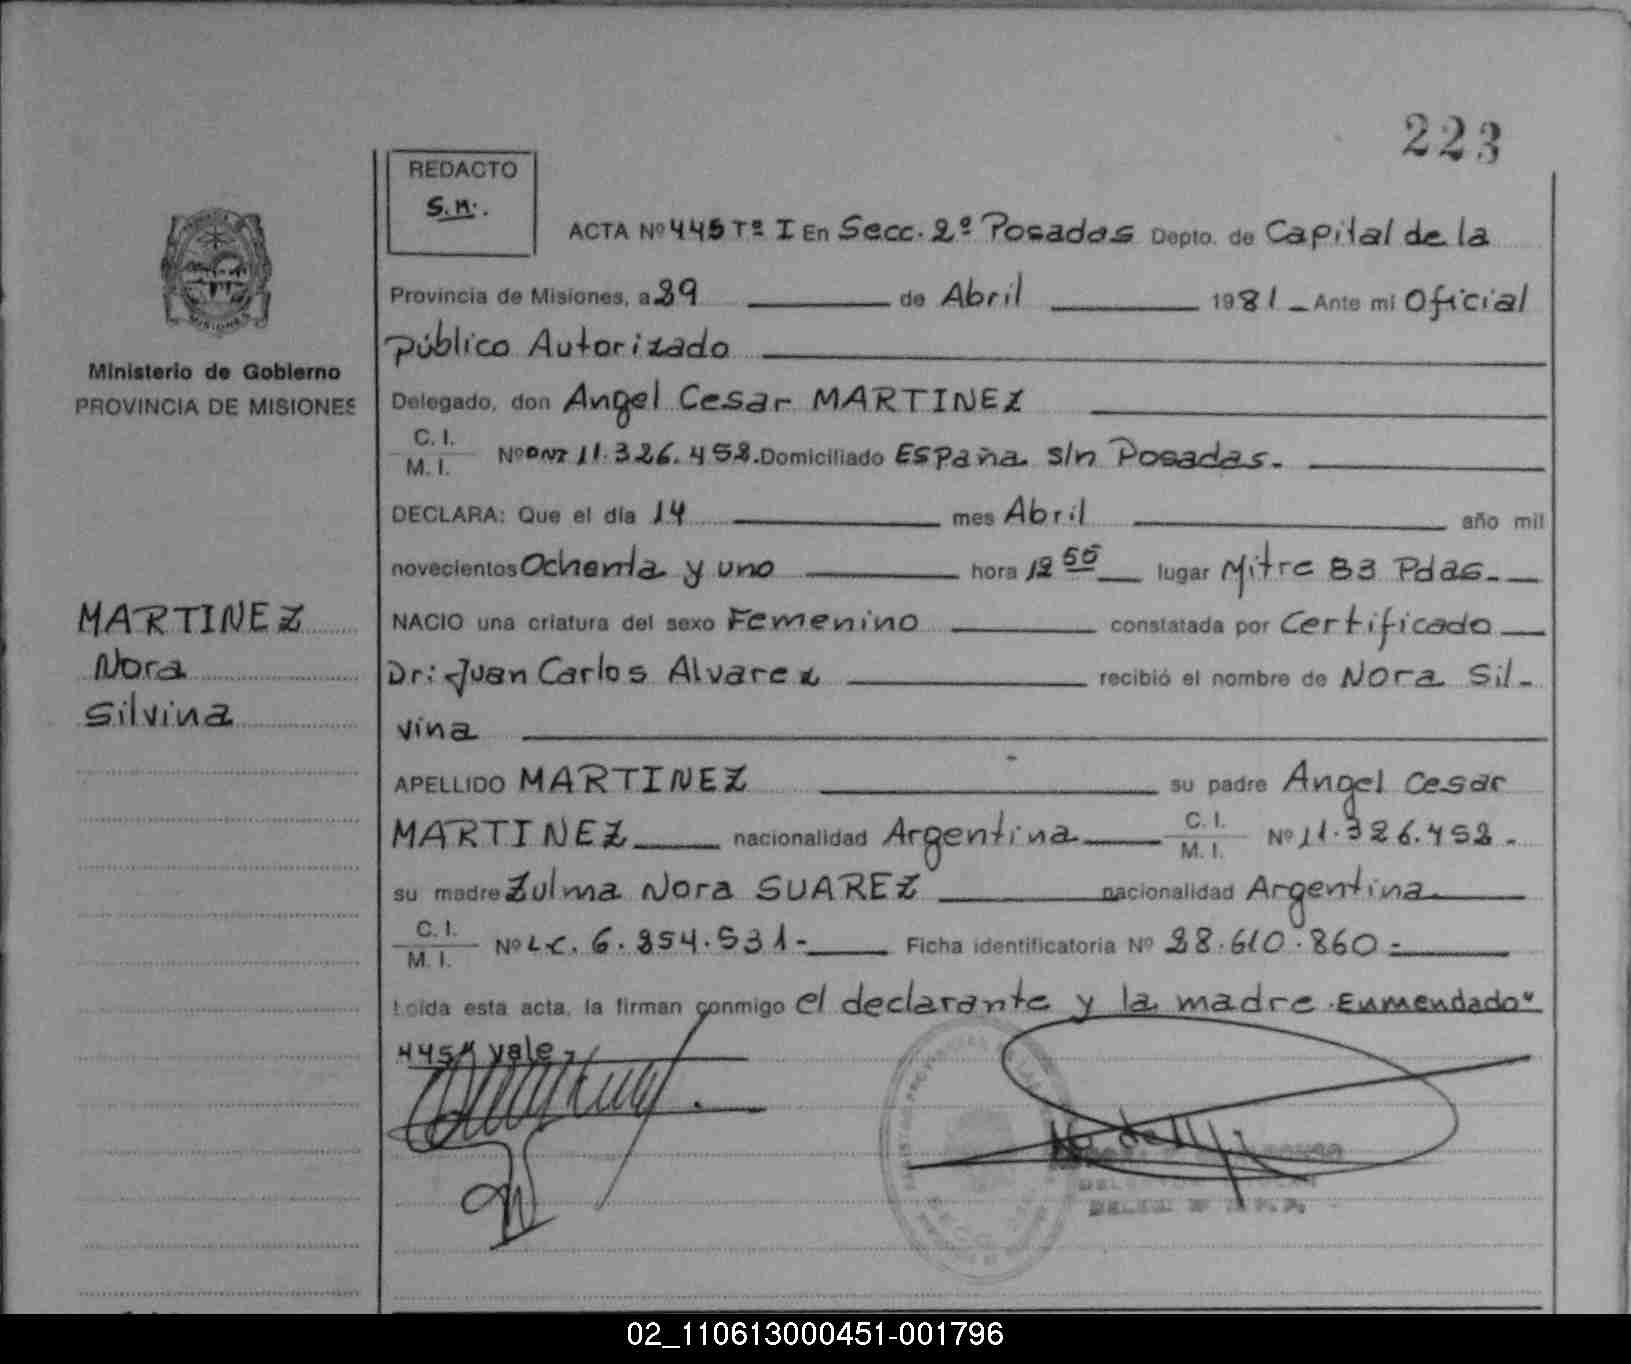 223
REDACTO
S.M.
ACTA Nº 445 Tº I En Secc. 2º Posadas Depto. de Capital de la
Provincia de Misiones, a 29 de Abril 1981 Ante mi Oficial
Público Autorizado
Ministerio de Gobierno
PROVINCIA DE MISIONES
Delegado, don Angel Cesar MARTINEZ
C. I.
M. I. Nº DNI 11.326.452. Domiciliado España s/n Posadas.
DECLARA: Que el día 14 mes Abril año mil
novecientos Ochenta y uno hora 12 55 lugar Mitre 83 Pdas.
MARTINEZ
Nora
Silvina
NACIO una criatura del sexo Femenino constatada por Certificado
Dr: Juan Carlos Alvarez recibió el nombre de Nora Sil-
vina
APELLIDO MARTINEZ su padre Angel Cesar
MARTINEZ nacionalidad Argentina C. I. M. I. Nº 11.326.452.
su madre Zulma Nora SUAREZ nacionalidad Argentina
C. I.
M. I. Nº L.C. 6.354.531- Ficha identificatoria Nº 28.610.860-
Leída esta acta, la firman conmigo el declarante y la madre. Enmendado"
445" vale
02_110613000451-001796